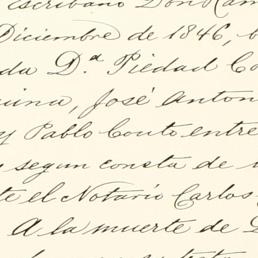 Escribano Don Ram
Diciembre de 1846, b
da D.ª Piedad Co
uina, José Anton
y Pablo Couto entre
segun consta de
te el Notario Carlos
A la muerte de D